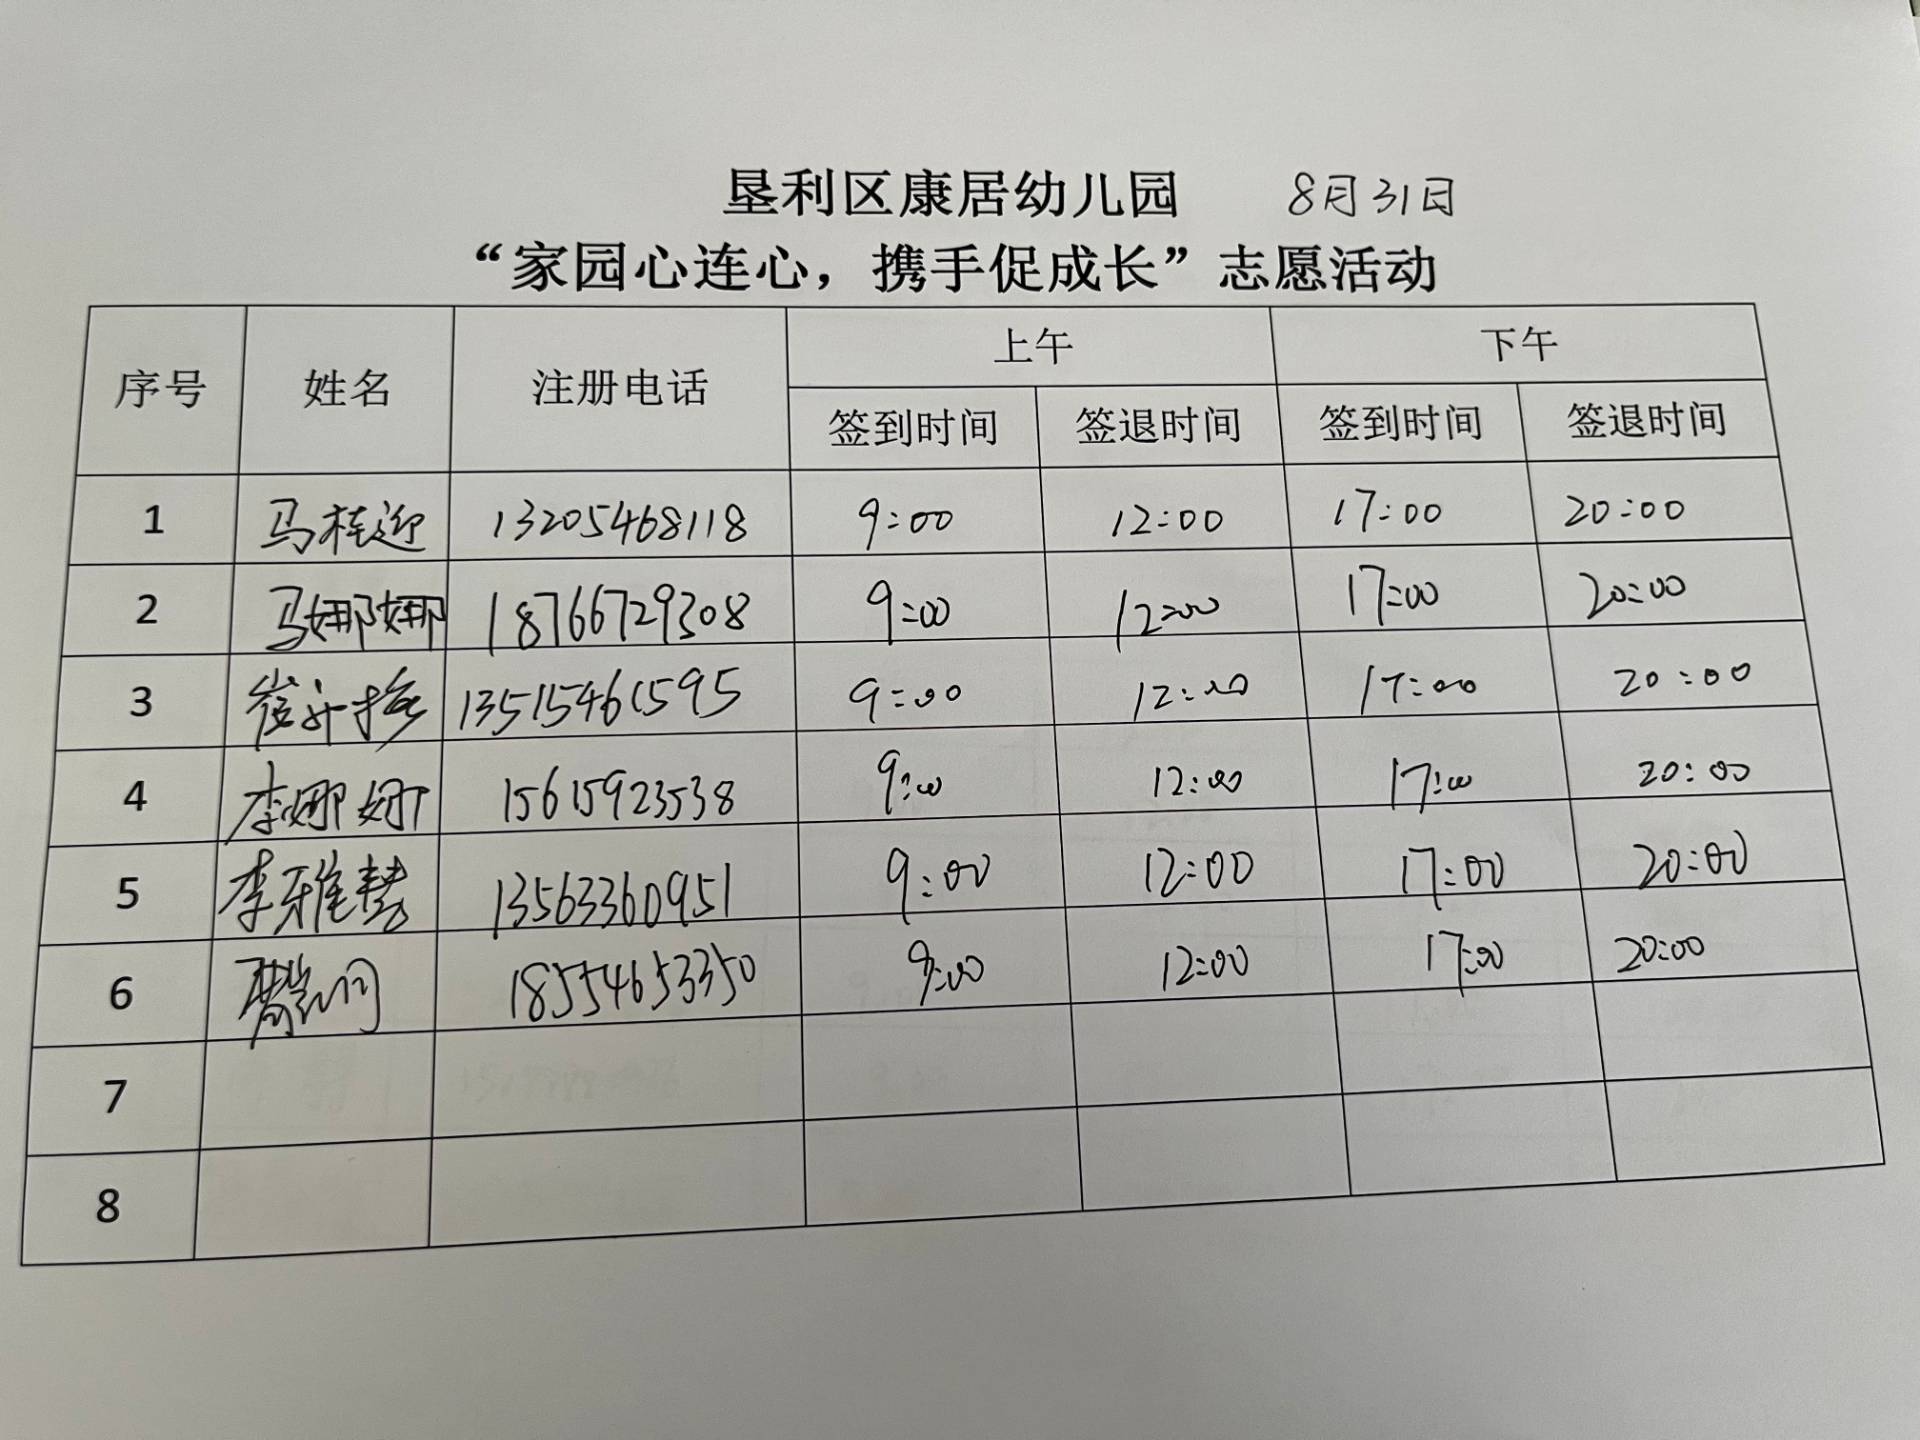 垦利区康居幼儿园 8月31日
“家园心连心，携手促成长”志愿活动
序号 姓名 注册电话 上午 下午
签到时间 签退时间 签到时间 签退时间
1 马桂迎 13205468118 9:00 12:00 17:00 20:00
2 马娜娜 18766729308 9:00 12:00 17:00 20:00
3 13515461595 9:00 12:00 17:00 20:00
4 李娜娜 15615923538 9:00 12:00 17:00 20:00
5 李雅慧 13563360951 9:00 12:00 17:00 20:00
6 18554653350 9:00 12:00 17:00 20:00
7
8